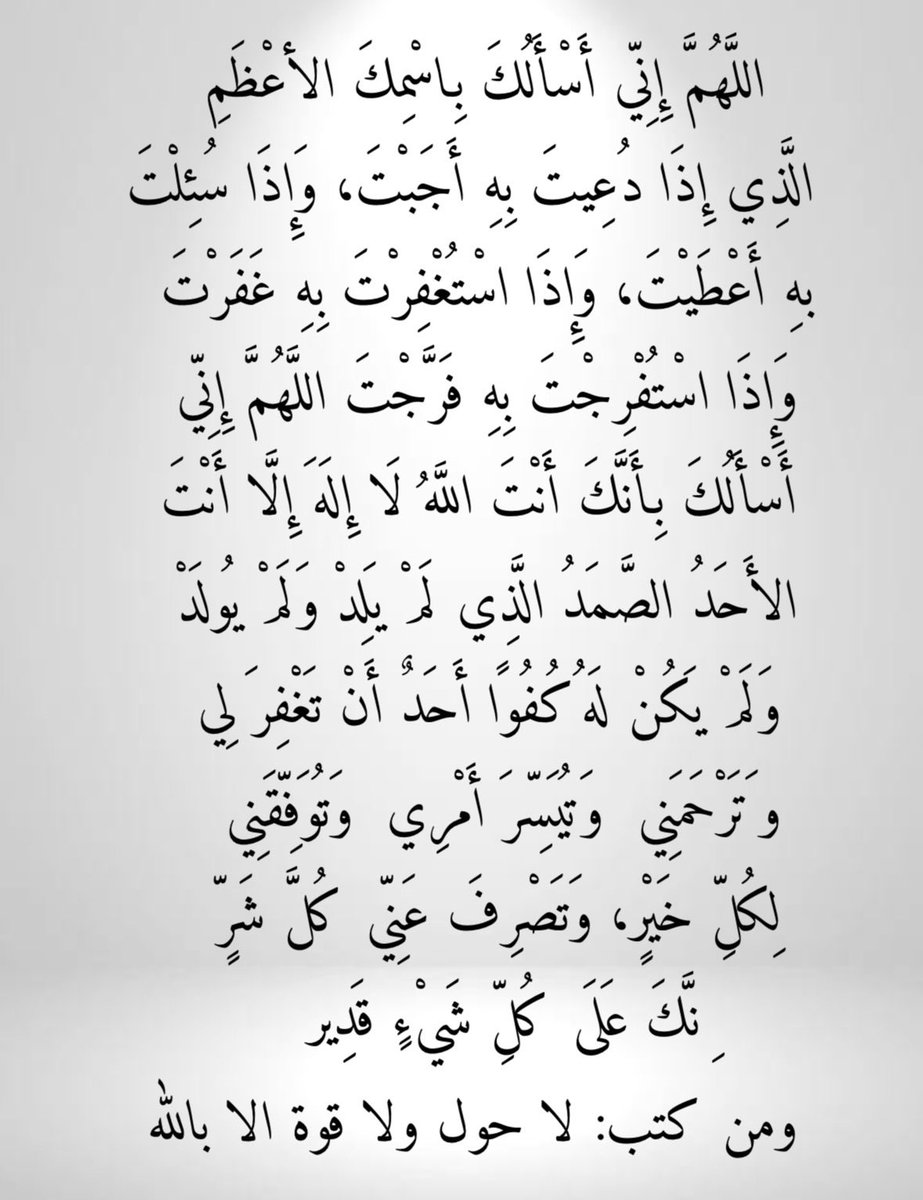 اللَّهُمَّ إِنِّي أَسْأَلُكَ بِاسْمِكَ الأعْظَمِ
الَّذِي إِذَا دُعِيتَ بِهِ أَجَبْتَ، وَإِذَا سُئِلْتَ
بِهِ أَعْطَيْتَ، وَإِذَا اسْتُغْفِرْتَ بِهِ غَفَرْتَ
وَإِذَا اسْتُفْرِجْتَ بِهِ فَرَّجْتَ اللَّهُمَّ إِنِّي
أَسْأَلُكَ بِأَنَّكَ أَنْتَ اللَّهُ لَا إِلَهَ إِلَّا أَنْتَ
الأَحَدُ الصَّمَدُ الَّذِي لَمْ يَلِدْ وَلَمْ يُولَدْ
وَلَمْ يَكُنْ لَهُ كُفُوًا أَحَدٌ أَنْ تَغْفِرَ لِي
وَتَرْحَمَنِي وَتُيَسِّرَ أَمْرِي وَتُوَفِّقَنِي
لِكُلِّ خَيْرٍ، وَتَصْرِفَ عَنِّي كُلَّ شَرٍّ
ِنَّكَ عَلَى كُلِّ شَيْءٍ قَدِير
ومن كتب: لا حول ولا قوة الا بالله